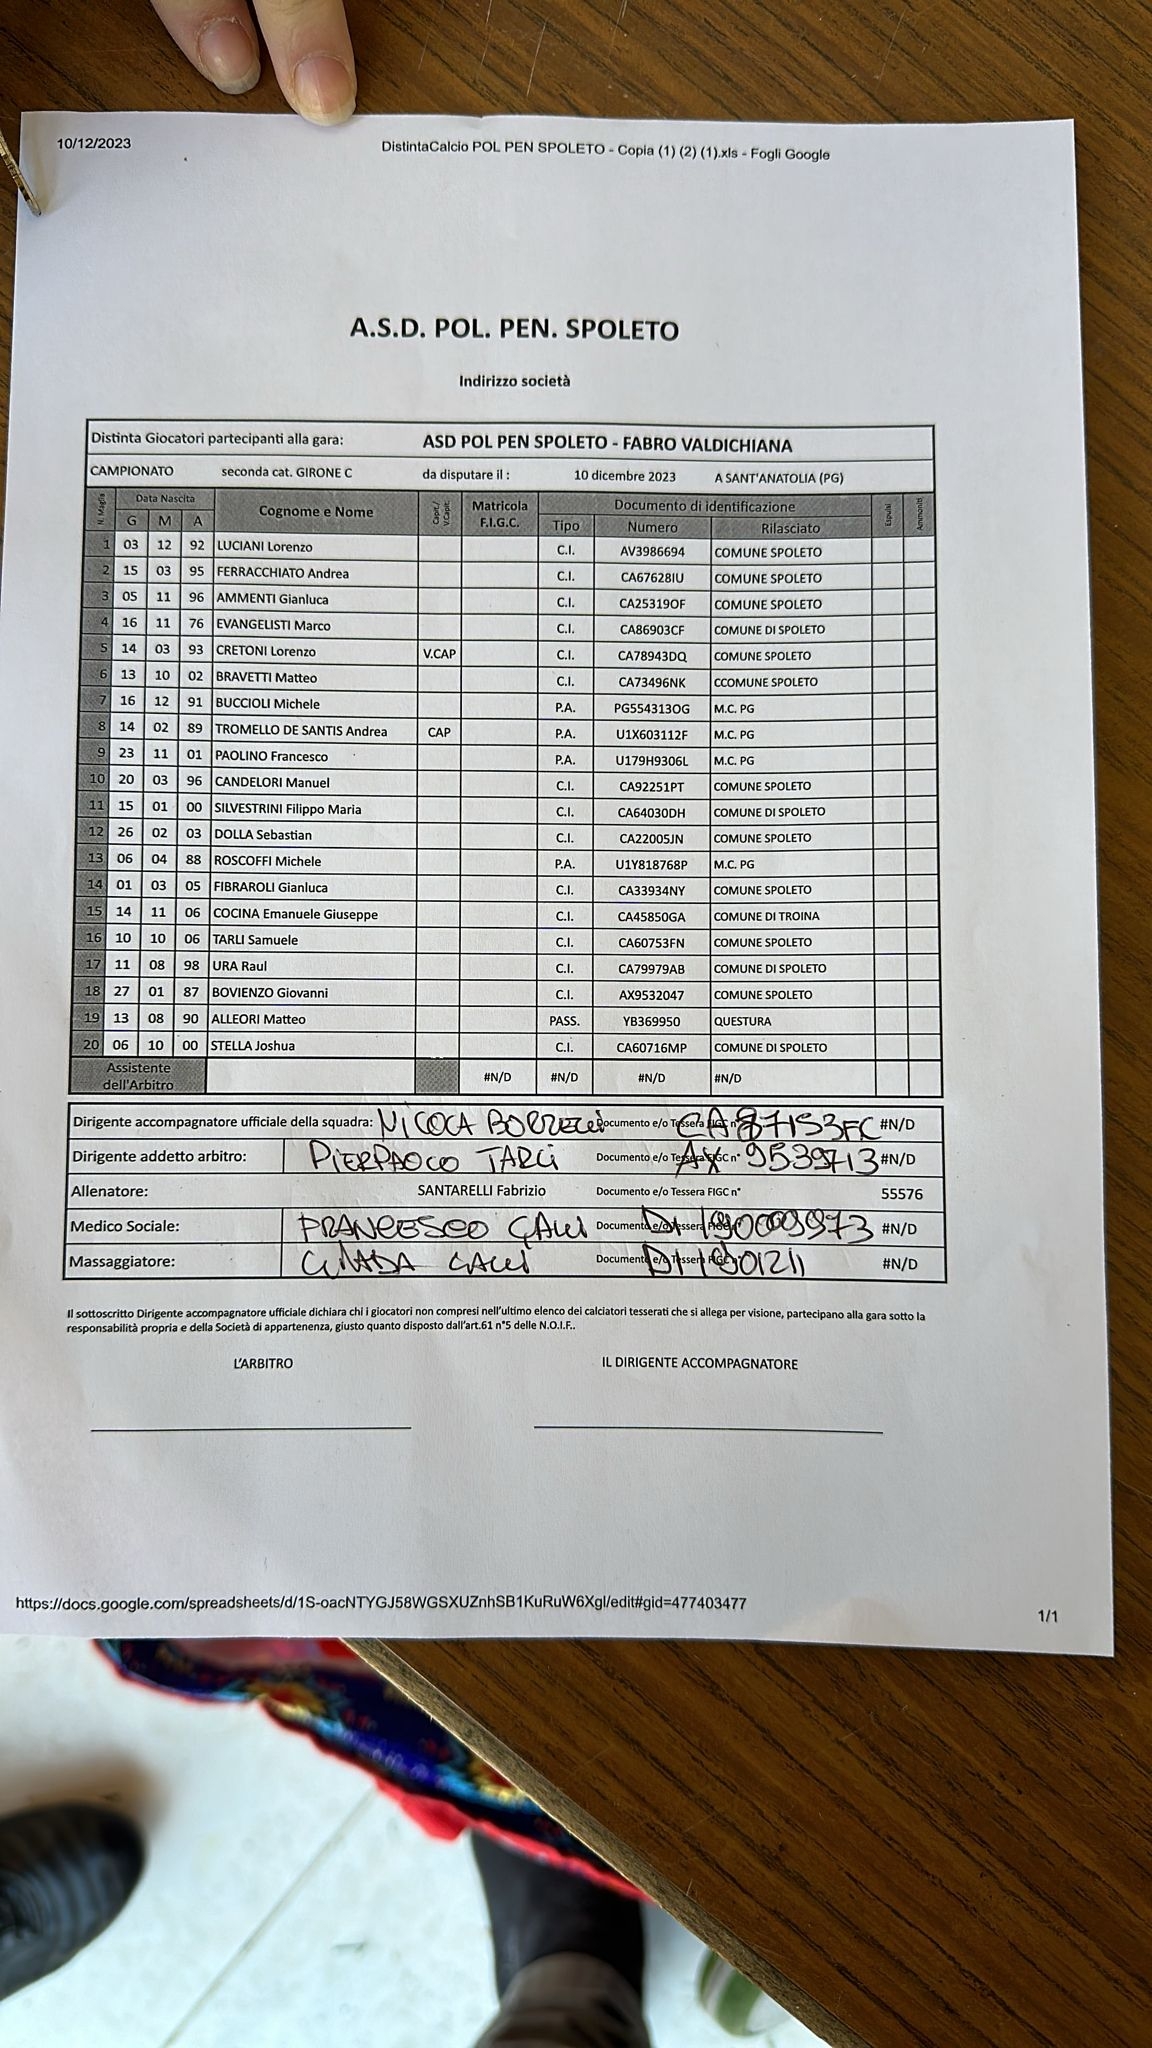 10/12/2023 DistintaCalcio POL PEN SPOLETO - Copia (1) (2) (1).xls - Fogli Google
A.S.D. POL. PEN. SPOLETO
Indirizzo società
Distinta Giocatori partecipanti alla gara: ASD POL PEN SPOLETO - FABRO VALDICHIANA
CAMPIONATO seconda cat. GIRONE C da disputare il : 10 dicembre 2023 A SANT'ANATOLIA (PG)
N. Maglia Data Nascita Cognome e Nome Capit./ V.Capit. Matricola F.I.G.C. Documento di identificazione Espulsi Ammoniti
G M A Tipo Numero Rilasciato
1 03 12 92 LUCIANI Lorenzo C.I. AV3986694 COMUNE SPOLETO
2 15 03 95 FERRACCHIATO Andrea C.I. CA67628IU COMUNE SPOLETO
3 05 11 96 AMMENTI Gianluca C.I. CA25319OF COMUNE SPOLETO
4 16 11 76 EVANGELISTI Marco C.I. CA86903CF COMUNE DI SPOLETO
5 14 03 93 CRETONI Lorenzo V.CAP C.I. CA78943DQ COMUNE SPOLETO
6 13 10 02 BRAVETTI Matteo C.I. CA73496NK CCOMUNE SPOLETO
7 16 12 91 BUCCIOLI Michele P.A. PG554313OG M.C. PG
8 14 02 89 TROMELLO DE SANTIS Andrea CAP P.A. U1X603112F M.C. PG
9 23 11 01 PAOLINO Francesco P.A. U179H9306L M.C. PG
10 20 03 96 CANDELORI Manuel C.I. CA92251PT COMUNE SPOLETO
11 15 01 00 SILVESTRINI Filippo Maria C.I. CA64030DH COMUNE DI SPOLETO
12 26 02 03 DOLLA Sebastian C.I. CA22005JN COMUNE SPOLETO
13 06 04 88 ROSCOFFI Michele P.A. U1Y818768P M.C. PG
14 01 03 05 FIBRAROLI Gianluca C.I. CA33934NY COMUNE SPOLETO
15 14 11 06 COCINA Emanuele Giuseppe C.I. CA45850GA COMUNE DI TROINA
16 10 10 06 TARLI Samuele C.I. CA60753FN COMUNE SPOLETO
17 11 08 98 URA Raul C.I. CA79979AB COMUNE DI SPOLETO
18 27 01 87 BOVIENZO Giovanni C.I. AX9532047 COMUNE SPOLETO
19 13 08 90 ALLEORI Matteo PASS. YB369950 QUESTURA
20 06 10 00 STELLA Joshua C.I. CA60716MP COMUNE DI SPOLETO
Assistente dell'Arbitro #N/D #N/D #N/D #N/D
Dirigente accompagnatore ufficiale della squadra: NICOLA Documento e/o Tessera FIGC n° CA87153FC #N/D
Dirigente addetto arbitro: PIERPAOLO TARLI Documento e/o Tessera FIGC n° AX 9539713 #N/D
Allenatore: SANTARELLI Fabrizio Documento e/o Tessera FIGC n° 55576
Medico Sociale: FRANCESCO GALLI Documento e/o Tessera FIGC #N/D
Massaggiatore: GALLI Documento e/o Tessera FIGC #N/D
Il sottoscritto Dirigente accompagnatore ufficiale dichiara chi i giocatori non compresi nell'ultimo elenco dei calciatori tesserati che si allega per visione, partecipano alla gara sotto la
responsabilità propria e della Società di appartenenza, giusto quanto disposto dall'art.61 n°5 delle N.O.I.F..
L'ARBITRO IL DIRIGENTE ACCOMPAGNATORE
https://docs.google.com/spreadsheets/d/1S-oacNTYGJ58WGSXUZnhSB1KuRuW6Xgl/edit#gid=477403477 1/1